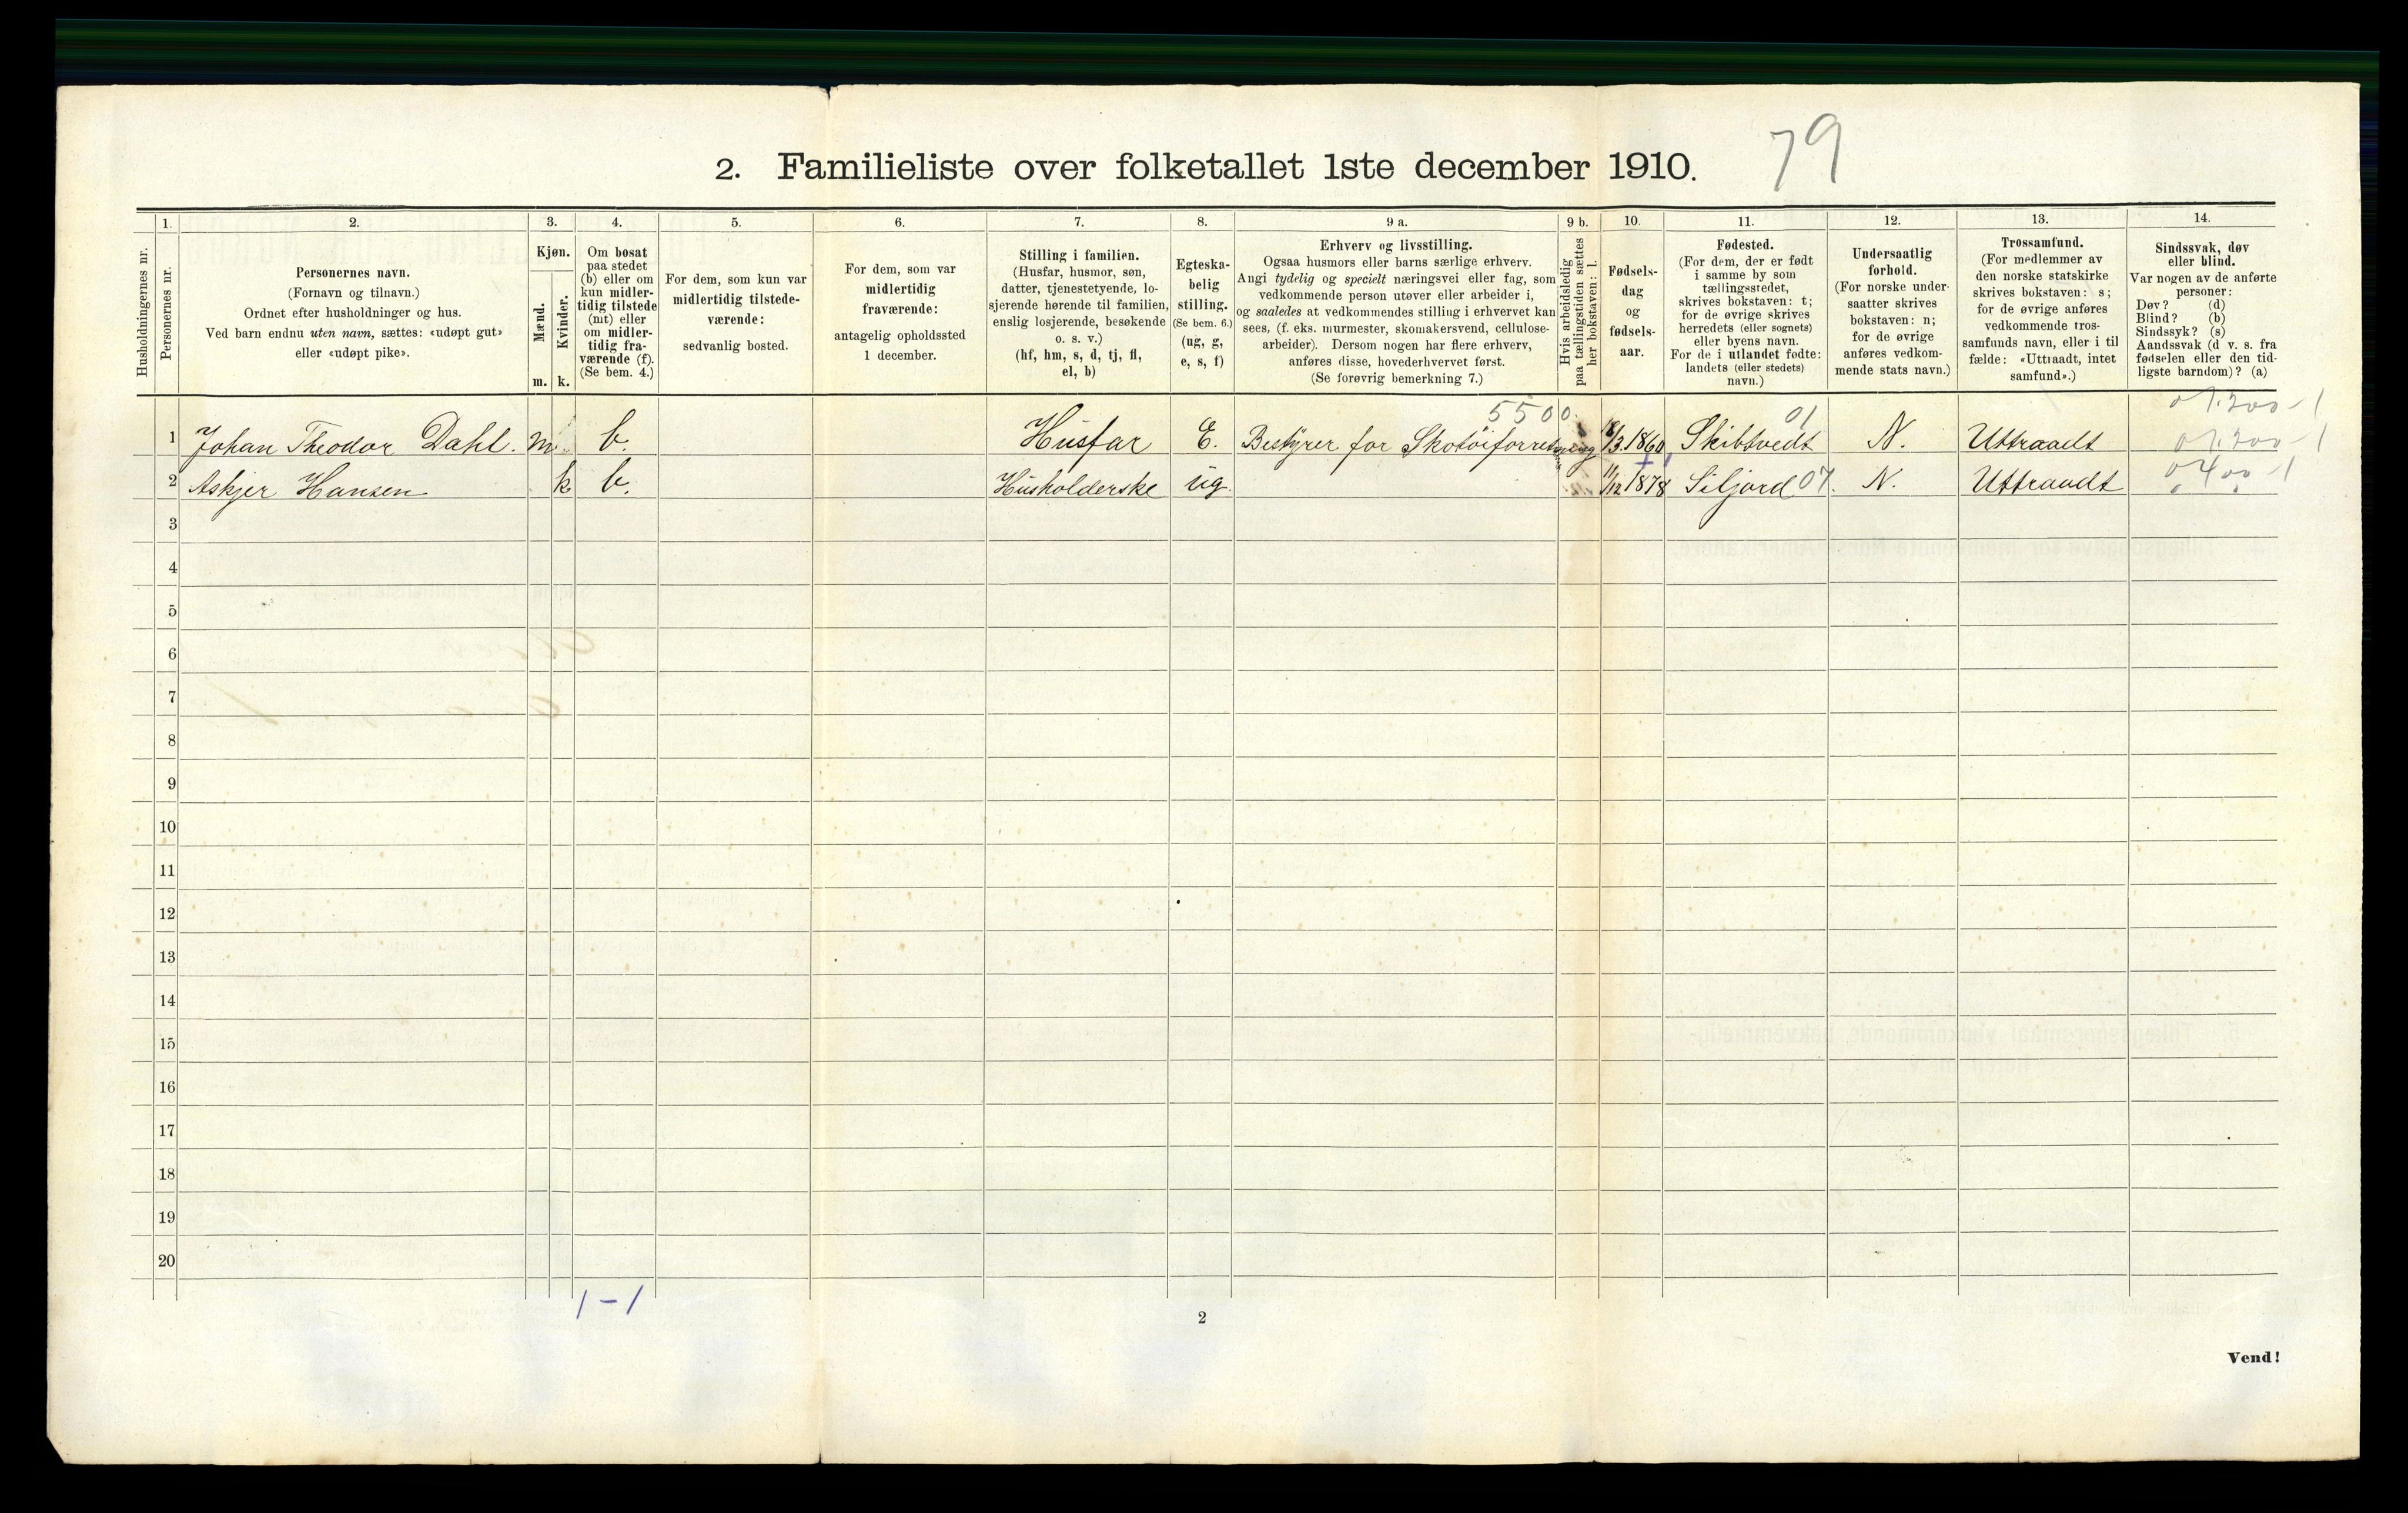 79
2. Familieliste over folketallet 1ste december 1910.
Husholdningernes nr.
1.
Personernes nr.
2.
Personernes navn.
(Fornavn og tilnavn.)
Ordnet efter husholdninger og hus.
Ved barn endnu uten navn, sættes: «udøpt gut»
eller «udøpt pike».
3.
Kjøn.
Mænd.
m.
Kvinder.
k.
4.
Om bosat
paa stedet
(b) eller om
kun midler-
tidig tilstede
(mt) eller
om midler-
tidig fra-
værende (f).
(Se bem. 4.)
5.
For dem, som kun var
midlertidig tilstede-
værende:
sedvanlig bosted.
6.
For dem, som var
midlertidig
fraværende:
antagelig opholdssted
1 december.
7.
Stilling i familien.
(Husfar, husmor, søn,
datter, tjenestetyende, lo-
sjerende hørende til familien,
enslig losjerende, besøkende
o. s. v.)
(hf, hm, s, d, tj, fl,
el, b)
8.
Egteska-
belig
stilling.
(Se bem. 6.)
(ug, g,
e, s, f)
9 a.
Erhverv og livsstilling.
Ogsaa husmors eller barns særlige erhverv.
Angi tydelig og specielt næringsvei eller fag, som
vedkommende person utøver eller arbeider i,
og saaledes at vedkommendes stilling i erhvervet kan
sees, (f. eks. murmester, skomakersvend, cellulose-
arbeider). Dersom nogen har flere erhverv,
anføres disse, hovederhvervet først.
(Se forøvrig bemerkning 7.)
9 b.
Hvis arbeidsledig
paa tællingstiden sættes
her bokstaven: l.
10.
Fødsels-
dag
og
fødsels-
aar.
11.
Fødested.
(For dem, der er født
i samme by som
tællingsstedet,
skrives bokstaven: t;
for de øvrige skrives
herredets (eller sognets)
eller byens navn.
For de i utlandet fødte:
landets (eller stedets)
navn.)
12.
Undersaatlig
forhold.
(For norske under-
saatter skrives
bokstaven: n;
for de øvrige
anføres vedkom-
mende stats navn.)
13.
Trossamfund.
(For medlemmer av
den norske statskirke
skrives bokstaven: s;
for de øvrige anføres
vedkommende tros-
samfunds navn, eller i til
fælde: «Uttraadt, intet
samfund».)
14.
Sindssvak, døv
eller blind.
Var nogen av de anførte
personer:
Døv? (d)
Blind? (b)
Sindssyk? (s)
Aandssvak (d v. s. fra
fødselen eller den tid-
ligste barndom)? (a)
5500 01
1 Johan Theodor Dahl. m b. Husfar E. Bestyrer for Skotøiforretning 18/3.1860 Skibtvedt N. Uttraadt
2 Askjer Hansen k b. Husholderske ug 11/12 1878 Siljord 07. N. Uttraadt
3
4
5
6
7
8
9
10
11
12
13
14
15
16
17
18
19
20
1-1
2
Vend!